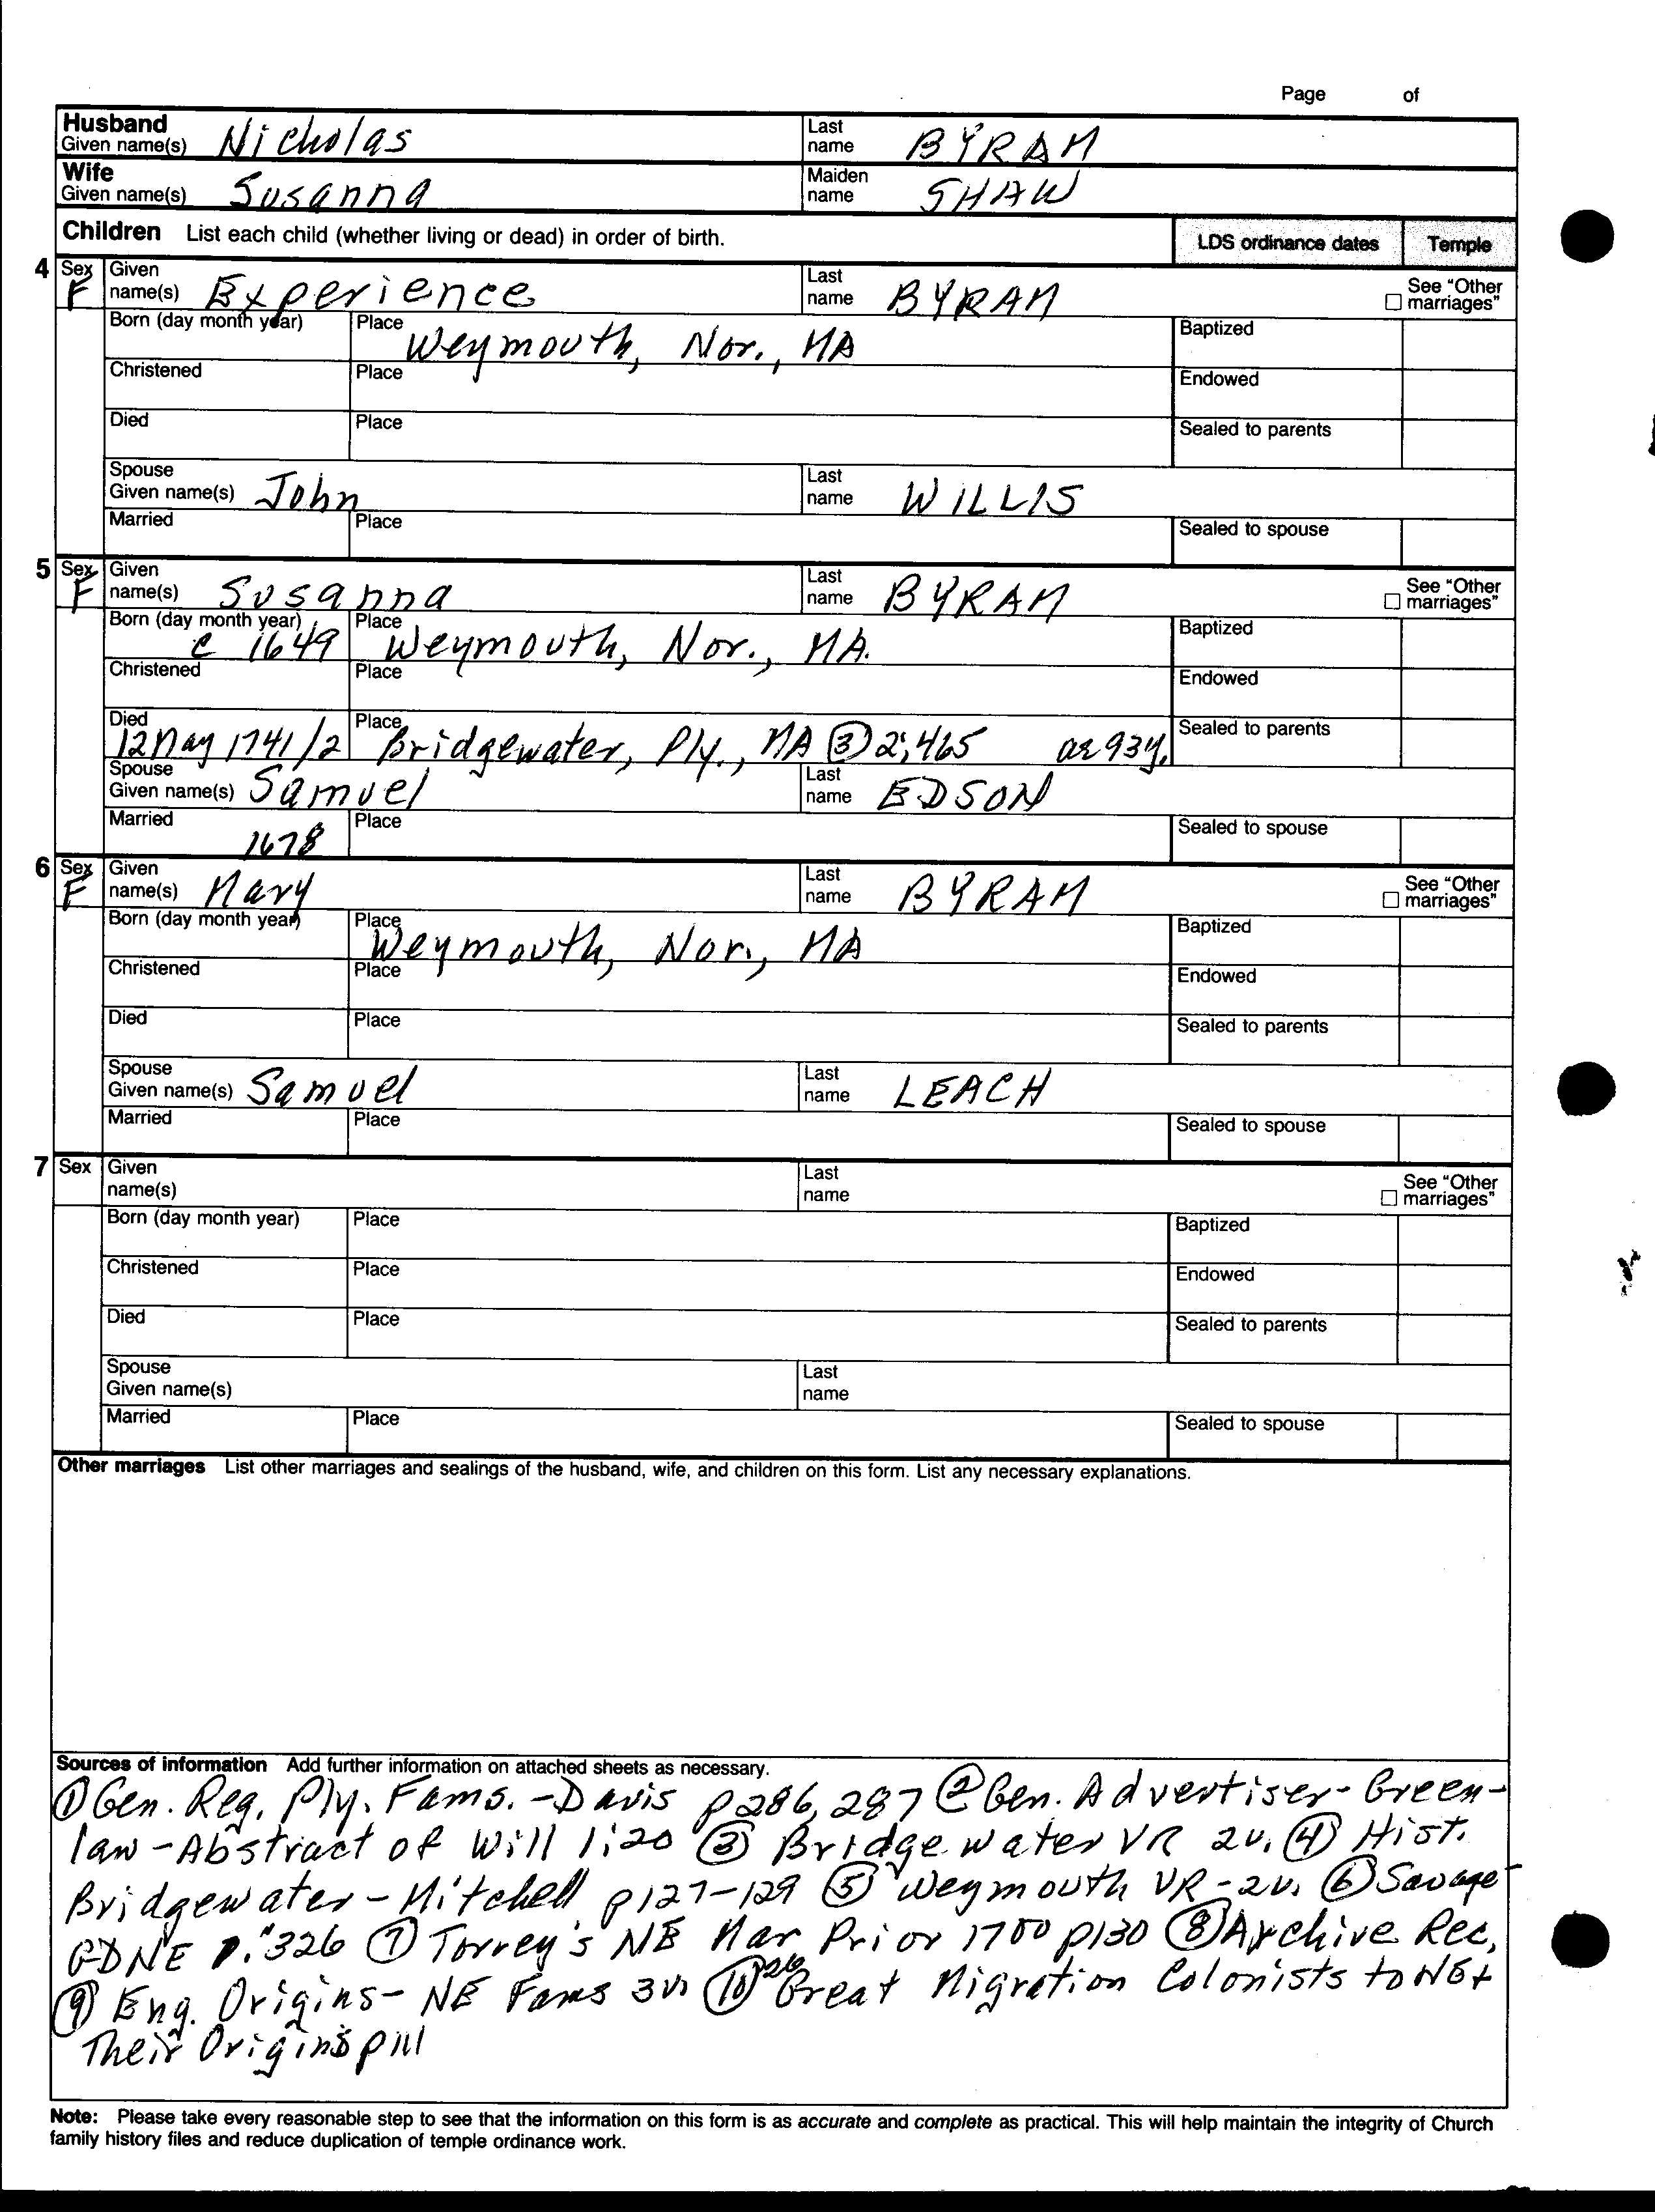 Page of
Husband Given name(s) Nicholas Last name BYRAM
Wife Given name(s) Susanna Maiden name SHAW
Children List each child (whether living or dead) in order of birth. LDS ordinance dates Temple
4 Sex F Given name(s) Experience Last name BYRAM See "Other marriages"
Born (day month year) Place Weymouth, Nor., MA Baptized
Christened Place Endowed
Died Place Sealed to parents
Spouse Given name(s) John Last name WILLIS
Married Place Sealed to spouse
5 Sex F Given name(s) Susanna Last name BYRAM See "Other marriages"
Born (day month year) c 1649 Place Weymouth, Nor., MA. Baptized
Christened Place Endowed
Died 12 May 1741/2 Place Bridgewater, Ply., MA ③ 2;465 ae 93y. Sealed to parents
Spouse Given name(s) Samuel Last name EDSON
Married 1678 Place Sealed to spouse
6 Sex F Given name(s) Mary Last name BYRAM See "Other marriages"
Born (day month year) Place Weymouth, Nor., MA Baptized
Christened Place Endowed
Died Place Sealed to parents
Spouse Given name(s) Samuel Last name LEACH
Married Place Sealed to spouse
7 Sex Given name(s) Last name See "Other marriages"
Born (day month year) Place Baptized
Christened Place Endowed
Died Place Sealed to parents
Spouse Given name(s) Last name
Married Place Sealed to spouse
Other marriages List other marriages and sealings of the husband, wife, and children on this form. List any necessary explanations.
Sources of information Add further information on attached sheets as necessary.
① Gen. Reg. Ply. Fams. - Davis p286, 287 ② Gen. Advertiser - Green-
law - Abstract of Will 1:20 ③ Bridgewater VR 2v. ④ Hist.
Bridgewater - Mitchell p127-129 ⑤ Weymouth VR - 2v. ⑥ Savage
GDNE p. 326 ⑦ Torrey's NE Mar Prior 1700 p130 ⑧ Archive Rec.
⑨ Eng. Origins - NE Fams 3v ⑩ Great Migration Colonists to NE +
Their Origins p111
Note: Please take every reasonable step to see that the information on this form is as accurate and complete as practical. This will help maintain the integrity of Church
family history files and reduce duplication of temple ordinance work.